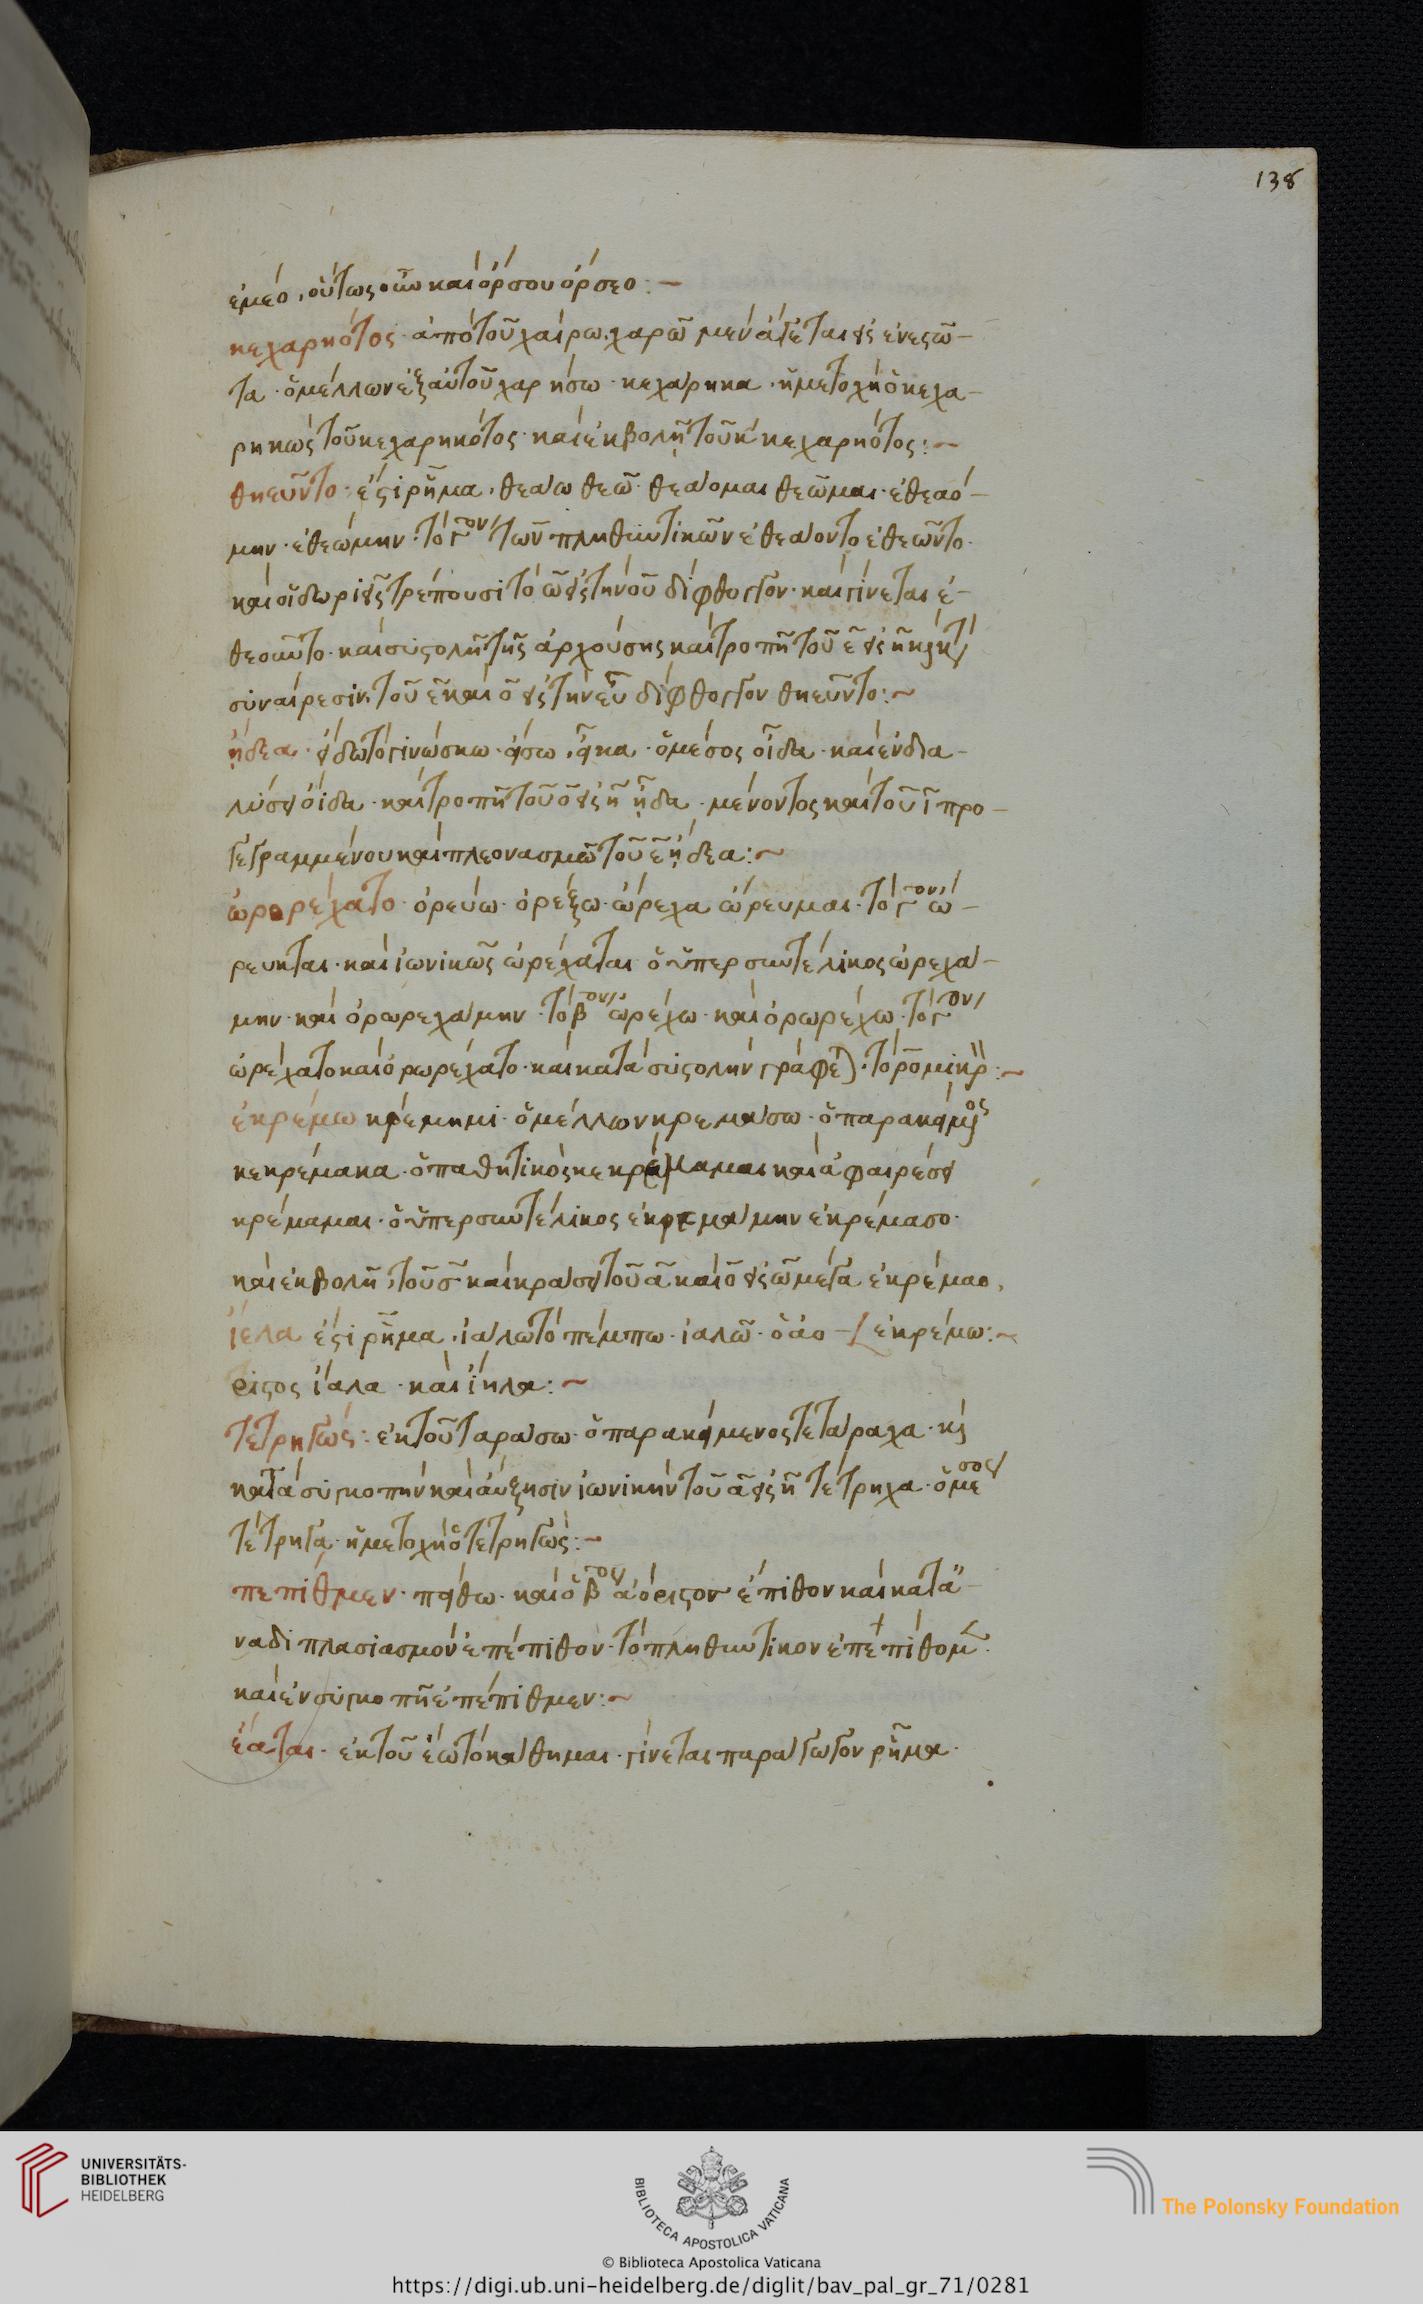 138
ἐμέο, οὕτως οὖν καὶ ὄρσου ὄρσεο:~
κεχαρηότος· ἀπὸ τοῦ χαίρω· χαρῶ μενάγεται εἰς ἐνεστῶ-
τα· ὁ μέλλων ἐξ αὐτοῦ χαρήσω· κεχάρηκα· ἡ μετοχὴ ὁ κεχα-
ρηκὼς τοῦ κεχαρηκότος· καὶ ἐκβολῆ τοῦ κ κεχαρηότος:~
θηεῦντο· ἔστι ῥῆμα, θεάω θεῶ· θεάομαι θεῶμαι· ἐθεαό-
μην· ἐθεώμην· τὸ γ̅ον τῶν πληθυντικῶν ἐθεάοντο ἐθεῶντο·
καὶ οἱ δωριεῖς τρέπουσι τὸ ω̅ εἰς τὴν ου̅ δίφθογγον· καὶ γίνεται ἐ-
θεοῦντο· καὶ συστολῆ τῆς ἀρχούσης καὶ τροπῆ τοῦ ε̅ εἰς η̅ καὶ κτ
συναίρεσιν τοῦ ε̅ καὶ ο̅ εἰς τὴν ευ̅ δίφθογγον θηεῦντο:~
ᾔδεα· εἴδω τὸ γινώσκω· εἴσω, εἶκα· ὁ μέσος οἶδα· καὶ ἐν δια-
λύσει ὄιδα· καὶ τροπῆ τοῦ ο̅ εἰς η̅ ᾖδα· μένοντος καὶ τοῦ ι̅ προ-
γεγραμμένου καὶ πλεονασμῶ τοῦ ε̅ ᾔδεα:~
ὠρορέχατο· ὀρεύω· ὀρέξω· ὤρεχα ὤρευμαι· τὸ γ̅ον ὠ-
ρευκται· καὶ ἰωνικῶς ὠρέχαται ὁ ὑπερσυντέλικος ὠρεχά-
μην· καὶ ὀρωρεχάμην· τὸ β̅ον ὠρέχω· καὶ ὀρωρέχω· τὸ γ̅ον
ὠρέχατο καὶ ὀρωρέχατο· καὶ κατὰ συστολὴν γράφεται· τὸ ρο̅ μικρ:~
ἐκρέμω κρέμημι· ὁ μέλλων κρεμάσω· ὁ παρακείμενος
κεκρέμακα· ὁ παθητικὸς κεκρέμαμαι καὶ ἀφαιρέσει
κρέμαμαι· ὁ ὑπερσυντέλικος ἐκρεμάμην ἐκρέμασο·
καὶ ἐκβολῆ τοῦ σ̅ καὶ κράσει τοῦ α̅ καὶ ο̅ εἰς ω̅ μέγα ἐκρέμαο,
ἴελα ἔστι ῥῆμα· ἰάλω τὸ πέμπω· ἰαλῶ· ὁ ἀο- [ἐκρέμω:~
ριστος ἴαλα· καὶ ἴηλα:~
τετρηγώς: ἐκ τοῦ ταράσω· ὁ παρακείμενος τετάραχα· καὶ
κατὰ συγκοπὴν καὶ αὔξησιν ἰωνικὴν τοῦ α̅ εἰς η̅ τέτρηχα· ὁ μέσος
τέτρηγα· ἡ μετοχὴ ὁ τετρηγώς:~
πεπίθμεν· πείθω· καὶ ὁ β̅ος ἀόριστος ἔπιθον καὶ κατὰ ἀ-
ναδιπλασιασμὸν ἐπέπιθον· τὸ πληθυντικὸν ἐπεπίθομεν·
καὶ ἐν συγκοπῆ ἐπέπιθμεν:~
ἕαται· ἐκ τοῦ ἕω τὸ κάθημαι· γίνεται παράγωγον ῥῆμα·
UNIVERSITÄTS-
BIBLIOTHEK
HEIDELBERG
BIBLIOTECA APOSTOLICA VATICANA
© Biblioteca Apostolica Vaticana
The Polonsky Foundation
https://digi.ub.uni-heidelberg.de/diglit/bav_pal_gr_71/0281